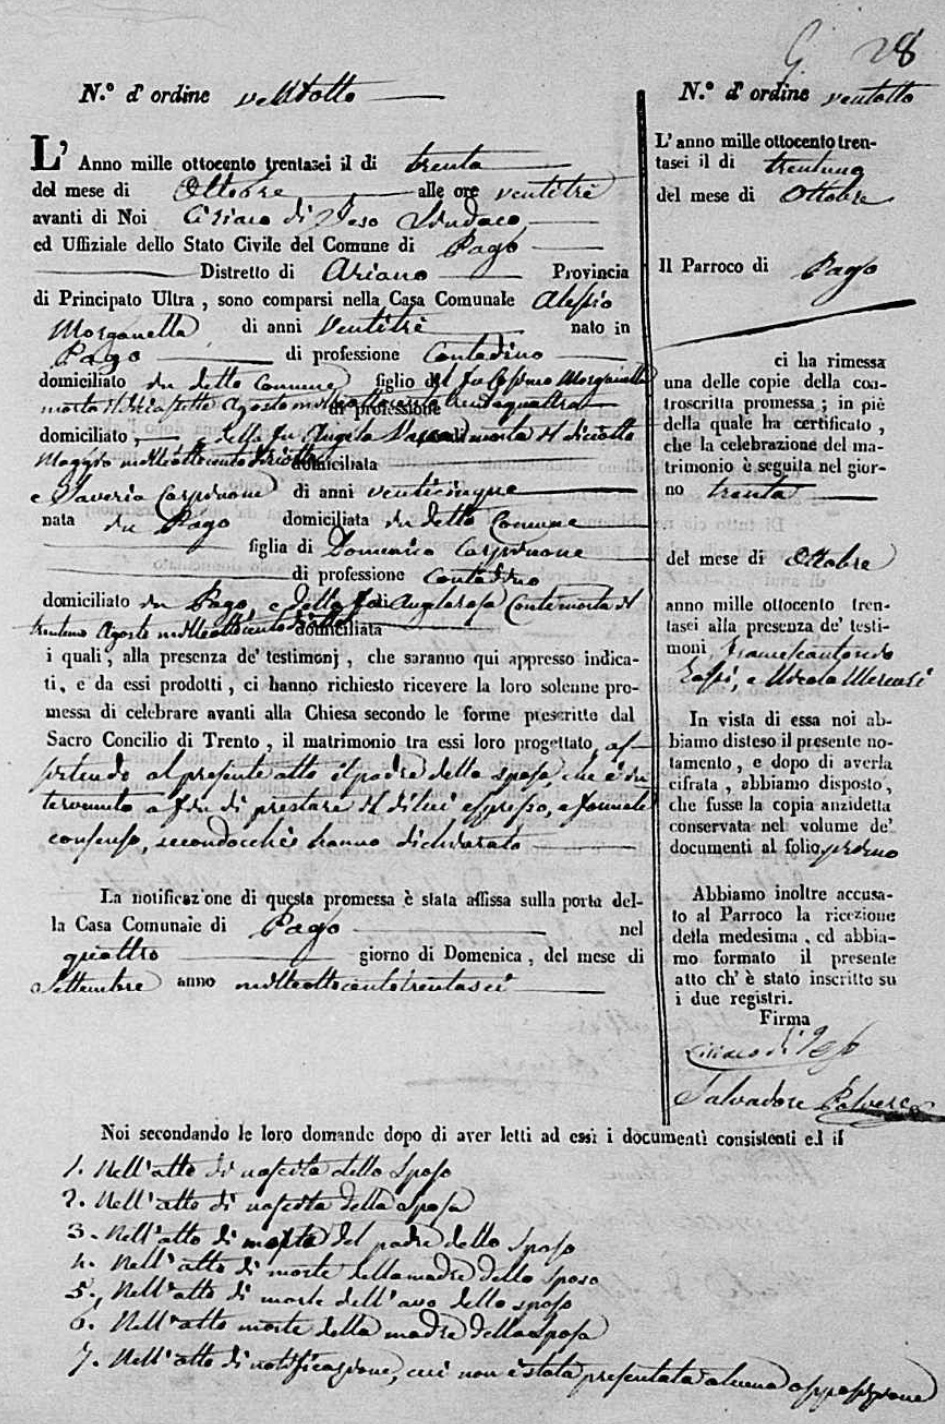 28
N.° d' ordine ventotto
L' Anno mille ottocento trentasei il di trenta
del mese di Ottobre alle ore ventitrè
avanti di Noi Ciriaco di Peso Sindaco
ed Uffiziale dello Stato Civile del Comune di Pago
Distretto di Ariano Provincia
di Principato Ultra, sono comparsi nella Casa Comunale Alessio
Morganella di anni ventitrè nato in
Pago di professione Contadino
domiciliato in detto Comune figlio del fu Cosimo Morganella
morto il diciassette Agosto milleottocentotrentaquattro di professione
domiciliato, e della fu Angela morta il diciotto
Maggio milleottocento domiciliata
e Saveria Carpinone di anni venticinque
nata in Pago domiciliata in detto Comune
figlia di Domenico Carpinone
di professione Contadino
domiciliato in Pago, e della fu Anglarosa Conte morta il
trentuno Agosto milleottocento domiciliata
i quali, alla presenza de' testimonj, che saranno qui appresso indica-
ti, e da essi prodotti, ci hanno richiesto ricevere la loro solenne pro-
messa di celebrare avanti alla Chiesa secondo le forme prescritte dal
Sacro Concilio di Trento, il matrimonio tra essi loro progettato, as-
sistendo al presente atto il padre della sposa, che è in
tervenuto a fin di prestare il di lui espresso, e formale
consenso, secondocchè hanno dichiarato
La notificazione di questa promessa è stata affissa sulla porta del-
la Casa Comunale di Pago nel
quattro giorno di Domenica, del mese di
Settembre anno milleottocentotrentasei
N.° d' ordine ventotto
L' anno mille ottocento tren-
tasei il di trentuno
del mese di Ottobre
Il Parroco di Pago
ci ha rimessa
una delle copie della con-
troscritta promessa; in piè
della quale ha certificato,
che la celebrazione del ma-
trimonio è seguita nel gior-
no trenta
del mese di Ottobre
anno mille ottocento tren-
tasei alla presenza de' testi-
moni Francescantonio
e Nicola
In vista di essa noi ab-
biamo disteso il presente no-
tamento, e dopo di averla
cifrata, abbiamo disposto,
che fusse la copia anzidetta
conservata nel volume de'
documenti al folio primo
Abbiamo inoltre accusa-
to al Parroco la ricezione
della medesima, ed abbia-
mo formato il presente
atto ch' è stato inscritto su
i due registri.
Firma
Ciriaco di Peso
Salvadore
Noi secondando le loro domande dopo di aver letti ad essi i documenti consistenti ed il
1. Nell'atto di nascita dello Sposo
2. Nell'atto di nascita della Sposa
3. Nell'atto di morte del padre dello Sposo
4. Nell'atto di morte della madre dello Sposo
5. Nell'atto di morte dell'avo dello sposo
6. Nell'atto morte della madre della Sposa
7. Nell'atto di notificazione, cui non è stata presentata alcuna opposizione